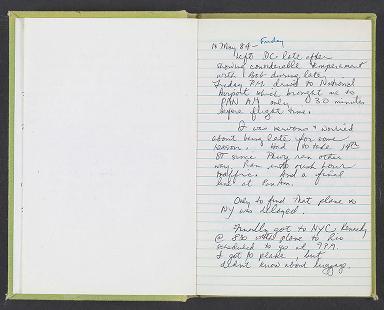 18 May 84 - Friday
Left DC late after
showing considerable temperament
with Bob during late
Friday P.M. drive to National
Airport which brought me to
PAN AM only 30 minutes
before flight time.
It was nervous & worried
about being late for some
reason. Had to take 14th
ST since Pkwy ran other
way. Ran into rush hour
traffic. And a final
line at Pan Am.
Only to find that plane to
NY was delayed.
Finally got to NYC, Kennedy
@ 830 when plane to Rio
scheduled to go at 9 P.M.
I got to plane, but
didn't know about luggage.